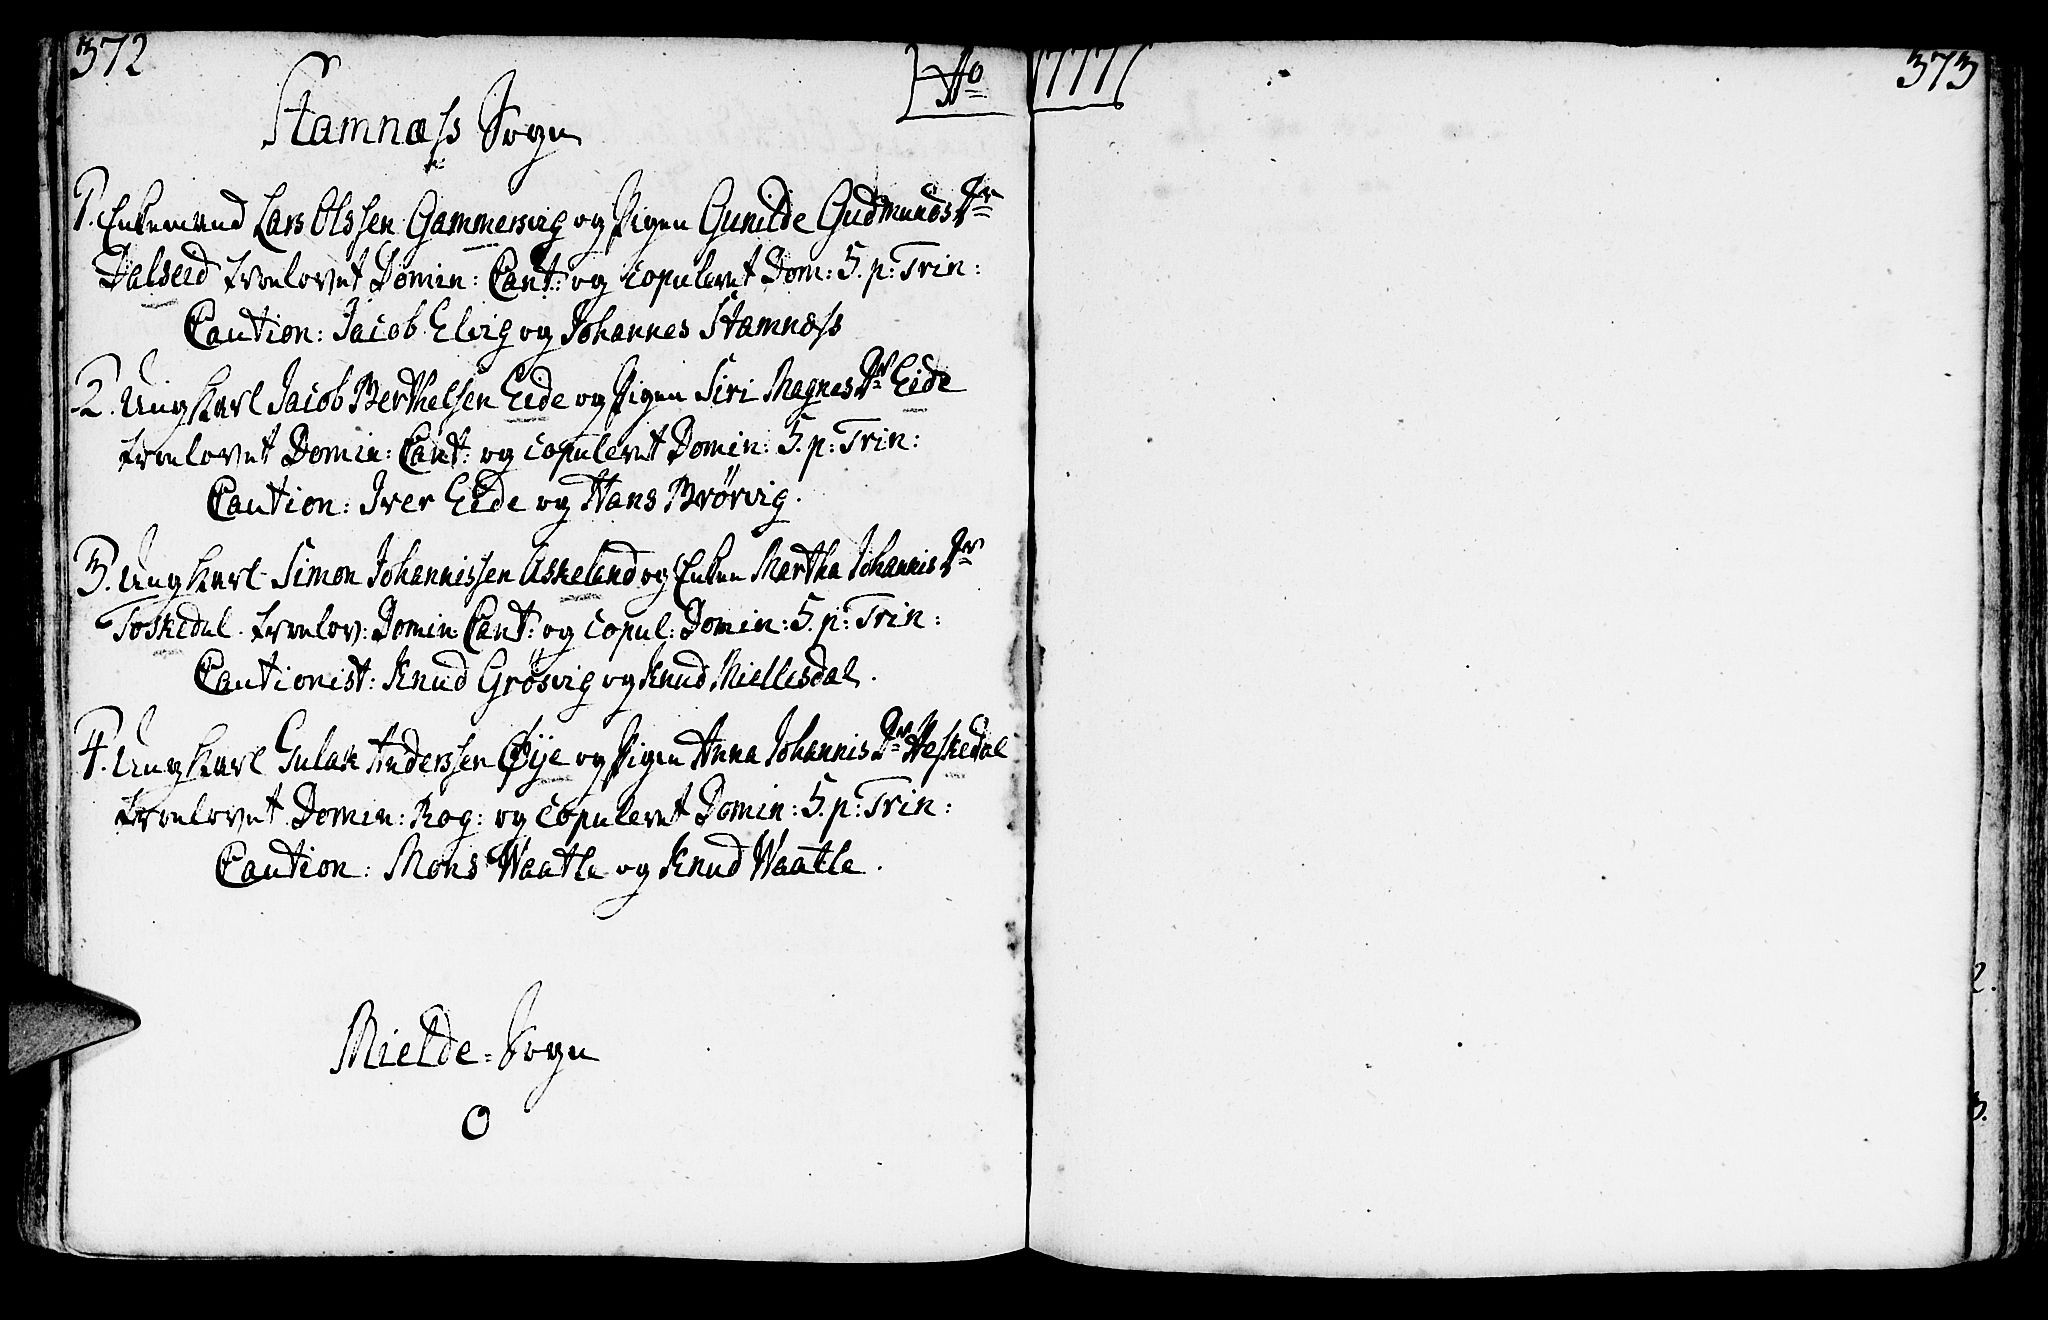 372
Ao 1777
373
Stamnæss Sogn
1. Enkemand Lars Olssen Gammersvig og Pigen Gunilde Gudmunds Dr
Dalseid trolovet Domin: Cant: og copuleret Dom: 5. p: Trin:
Caution: Jacob Elvig og Johannes Stamnæss
2. Ung Karl Jacob Berthelsen Eide og Pigen Siri Magnes Dr Eide
trolovet Domin: Cant: og copuleret Domin: 5. p: Trin:
Caution: Iver Eide og Hans Brörvig.
3. Ung Karl Simon Johannissen Askeland og Enken Martha Johannis Dr
Toskedal. trolov: Domin: Cant: og copul: Domin: 5. p: Trin:
Cautionist: Knud Grösvig og Knud Miellesdal.
4. Ung Karl Gulak Anderssen Øije og Pigen Anna Johannis Dr Heskedal
trolovet Domin: Rog: og copuleret Domin: 5. p: Trin:
Caution: Mons Waatle og Knud Waatle.
Mielde=Sogn
0
2.
3.